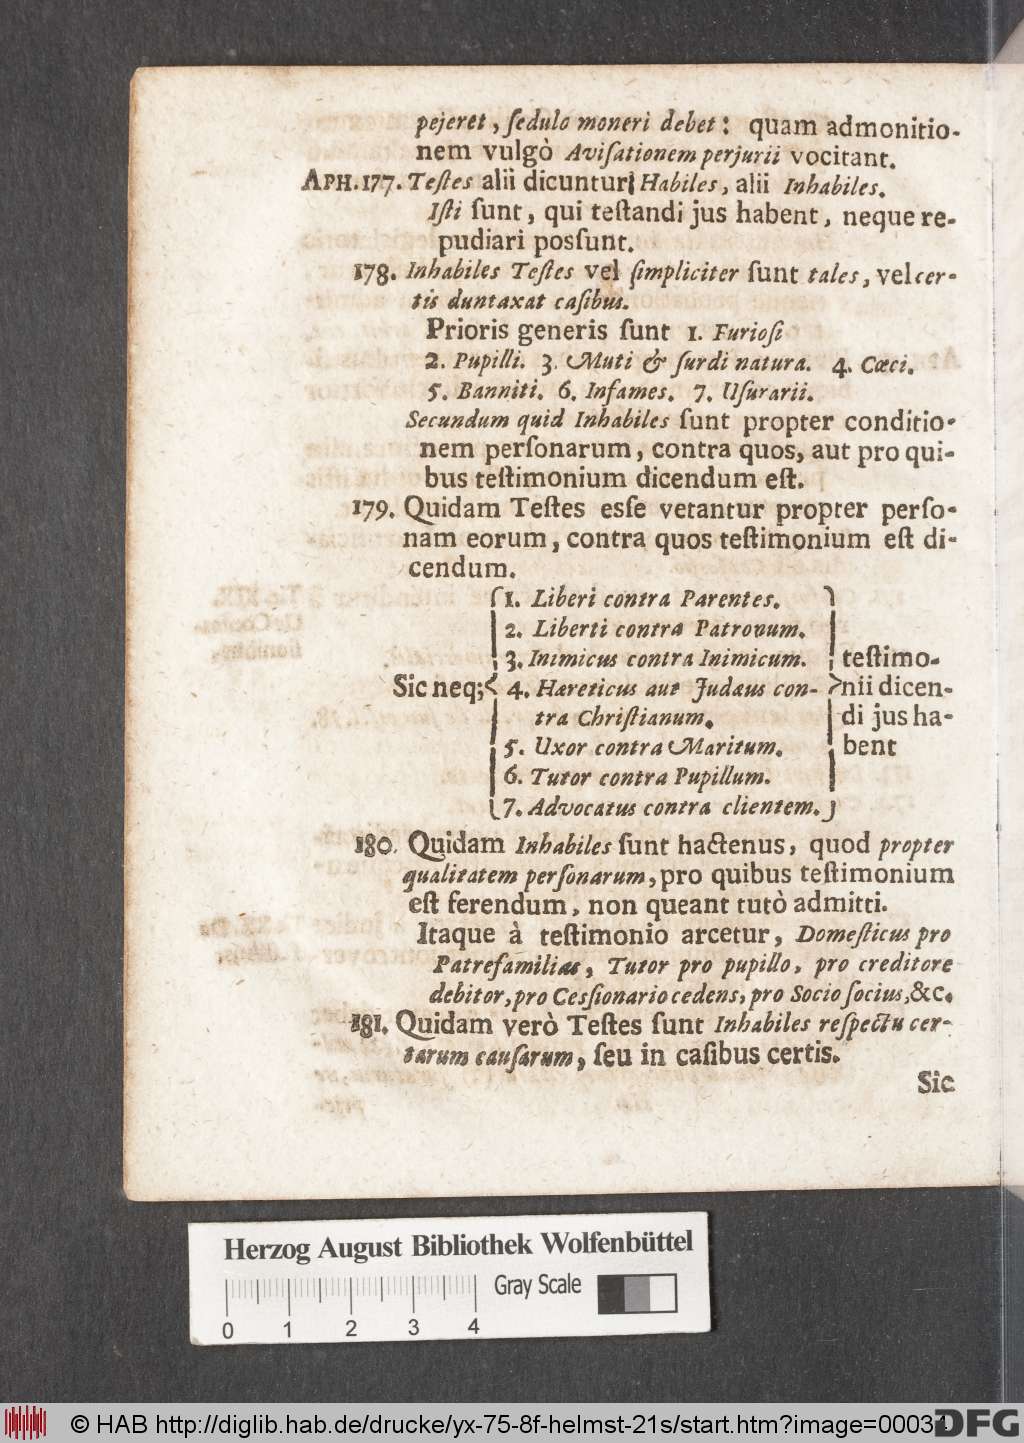 pejeret, ſedulo moneri debet: quam admonitio-
nem vulgò Aviſationem perjurii vocitant.
APH. 177. Teſtes alii dicuntur Habiles, alii Inhabiles.
Iſti ſunt, qui teſtandi jus habent, neque re-
pudiari posſunt.
178. Inhabiles Teſtes vel ſimpliciter ſunt tales, vel cer-
tis duntaxat caſibus.
Prioris generis ſunt 1. Furioſi
2. Pupilli. 3. Muti & ſurdi natura. 4. Cœci.
5. Banniti. 6. Infames. 7. Uſurarii.
Secundum quid Inhabiles ſunt propter conditio-
nem perſonarum, contra quos, aut pro qui-
bus teſtimonium dicendum eſt.
179. Quidam Teſtes esſe vetantur propter perſo-
nam eorum, contra quos teſtimonium eſt di-
cendum.
1. Liberi contra Parentes.
2. Liberti contra Patronum.
3. Inimicus contra Inimicum. teſtimo-
Sic neq; 4. Hæreticus aut Judæus con- nii dicen-
tra Chriſtianum. di jus ha-
5. Uxor contra Maritum. bent
6. Tutor contra Pupillum.
7. Advocatus contra clientem.
180. Quidam Inhabiles ſunt hactenus, quod propter
qualitatem perſonarum, pro quibus teſtimonium
eſt ferendum, non queant tutò admitti.
Itaque à teſtimonio arcetur, Domeſticus pro
Patrefamilias, Tutor pro pupillo, pro creditore
debitor, pro Cesſionario cedens, pro Socio ſocius, &c.
181. Quidam verò Teſtes ſunt Inhabiles reſpectu cer-
tarum cauſarum, ſeu in caſibus certis.
Sic
Herzog August Bibliothek Wolfenbüttel
Gray Scale
0 1 2 3 4
© HAB http://diglib.hab.de/drucke/yx-75-8f-helmst-21s/start.htm?image=00034
DFG